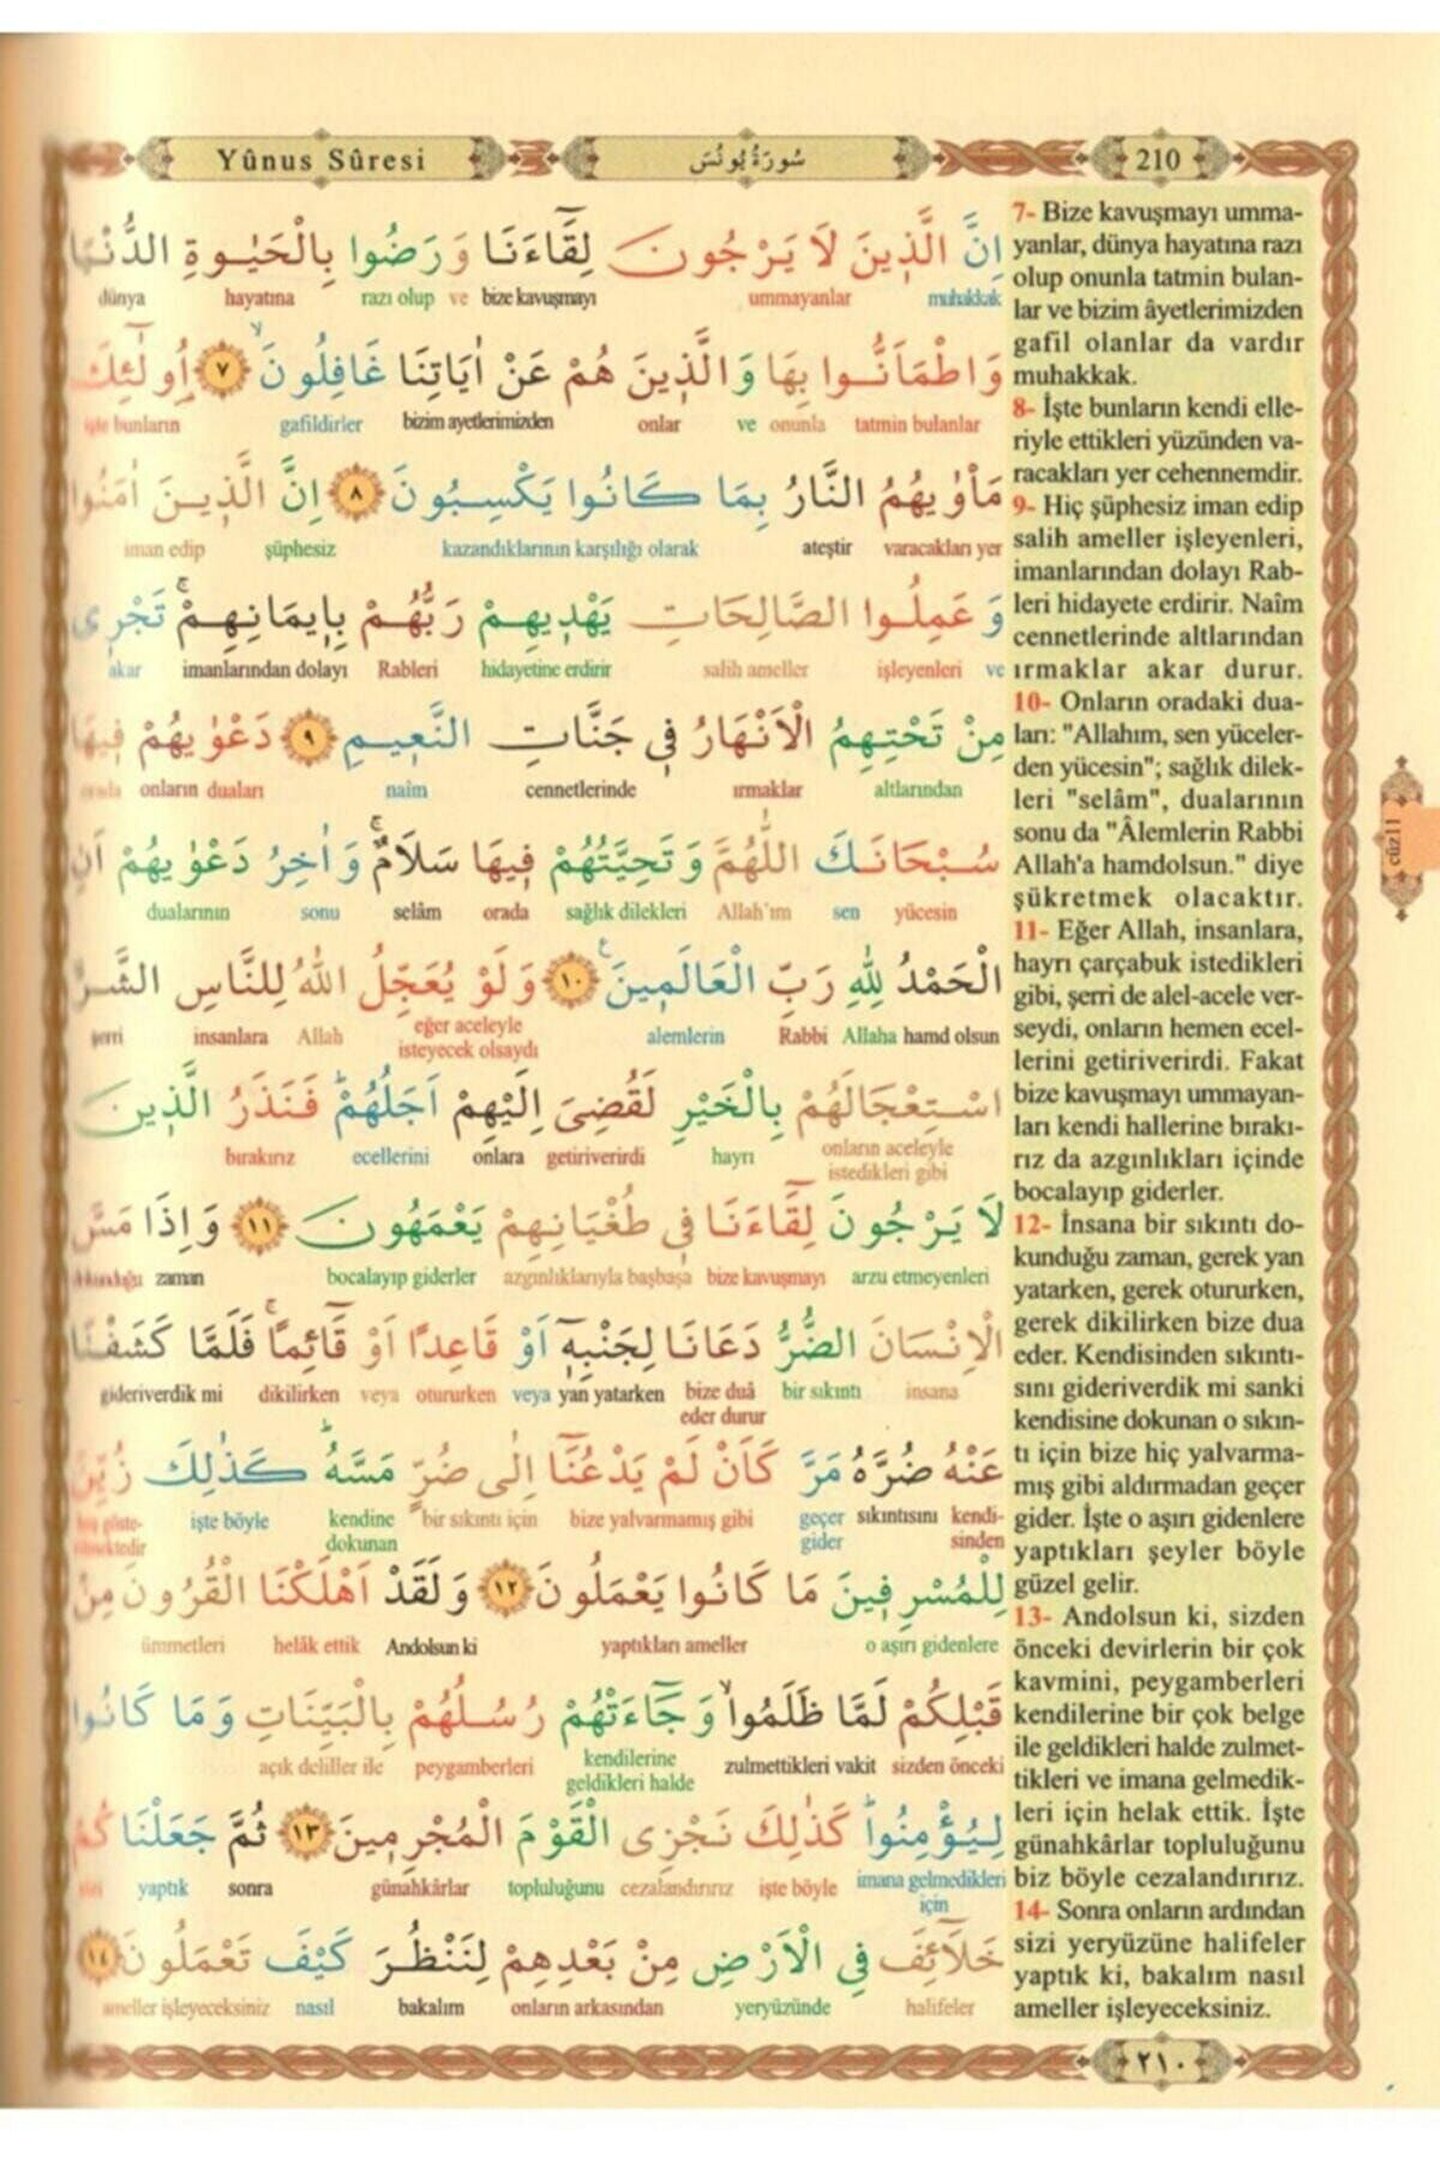 Yûnus Sûresi
سُورَةُ يُونُسَ
210
اِنَّ الَّذ۪ينَ لَا يَرْجُونَ لِقَٓاءَنَا وَرَضُوا بِالْحَيٰوةِ الدُّنْيَا
muhakkak ummayanlar bize kavuşmayı ve razı olup hayatına dünya
وَاطْمَاَنُّوا بِهَا وَالَّذ۪ينَ هُمْ عَنْ اٰيَاتِنَا غَافِلُونَۙ ﴿٧﴾ اُو۬لٰٓئِكَ
tatmin bulanlar onunla ve onlar bizim ayetlerimizden gafildirler işte bunların
مَأْوٰيهُمُ النَّارُ بِمَا كَانُوا يَكْسِبُونَ ﴿٨﴾ اِنَّ الَّذ۪ينَ اٰمَنُوا
varacakları yer ateştir kazandıklarının karşılığı olarak şüphesiz iman edip
وَعَمِلُوا الصَّالِحَاتِ يَهْد۪يهِمْ رَبُّهُمْ بِا۪يمَانِهِمْۚ تَجْر۪ي
ve işleyenleri salih ameller hidayetine erdirir Rableri imanlarından dolayı akar
مِنْ تَحْتِهِمُ الْاَنْهَارُ ف۪ي جَنَّاتِ النَّع۪يمِ ﴿٩﴾ دَعْوٰيهُمْ ف۪يهَا
altlarından ırmaklar cennetlerinde naîm onların duaları orada
سُبْحَانَكَ اللّٰهُمَّ وَتَحِيَّتُهُمْ ف۪يهَا سَلَامٌۚ وَاٰخِرُ دَعْوٰيهُمْ اَنِ
yücesin sen Allah'ım sağlık dilekleri orada selâm sonu dualarının
الْحَمْدُ لِلّٰهِ رَبِّ الْعَالَم۪ينَ۟ ﴿١٠﴾ وَلَوْ يُعَجِّلُ اللّٰهُ لِلنَّاسِ الشَّرَّ
hamd olsun Allaha Rabbi alemlerin eğer aceleyle isteyecek olsaydı Allah insanlara şerri
اسْتِعْجَالَهُمْ بِالْخَيْرِ لَقُضِيَ اِلَيْهِمْ اَجَلُهُمْۜ فَنَذَرُ الَّذ۪ينَ
onların aceleyle istedikleri gibi hayrı getiriverirdi onlara ecellerini bırakırız
لَا يَرْجُونَ لِقَٓاءَنَا ف۪ي طُغْيَانِهِمْ يَعْمَهُونَ ﴿١١﴾ وَاِذَا مَسَّ
arzu etmeyenleri bize kavuşmayı azgınlıklarıyla başbaşa bocalayıp giderler zaman dokunduğu
الْاِنْسَانَ الضُّرُّ دَعَانَا لِجَنْبِه۪ٓ اَوْ قَاعِدًا اَوْ قَٓائِمًاۚ فَلَمَّا كَشَفْنَا
insana bir sıkıntı bize duâ eder durur yan yatarken veya otururken veya dikilirken gideriverdik mi
عَنْهُ ضُرَّهُ مَرَّ كَاَنْ لَمْ يَدْعُنَٓا اِلٰى ضُرٍّ مَسَّهُۜ كَذٰلِكَ زُيِّنَ
kendisinden sıkıntısını geçer gider bize yalvarmamış gibi bir sıkıntı için kendine dokunan işte böyle
لِلْمُسْرِف۪ينَ مَا كَانُوا يَعْمَلُونَ ﴿١٢﴾ وَلَقَدْ اَهْلَكْنَا الْقُرُونَ مِنْ
o aşırı gidenlere yaptıkları ameller Andolsun ki helâk ettik ümmetleri
قَبْلِكُمْ لَمَّا ظَلَمُواۙ وَجَٓاءَتْهُمْ رُسُلُهُمْ بِالْبَيِّنَاتِ وَمَا كَانُوا
sizden önceki zulmettikleri vakit kendilerine geldikleri halde peygamberleri açık deliller ile
لِيُؤْمِنُواۜ كَذٰلِكَ نَجْزِي الْقَوْمَ الْمُجْرِم۪ينَ ﴿١٣﴾ ثُمَّ جَعَلْنَاكُمْ
imana gelmedikleri için işte böyle cezalandırırız topluluğunu günahkârlar sonra yaptık sizi
خَلَٓائِفَ فِي الْاَرْضِ مِنْ بَعْدِهِمْ لِنَنْظُرَ كَيْفَ تَعْمَلُونَ ﴿١٤﴾
halifeler yeryüzünde onların arkasından bakalım nasıl ameller işleyeceksiniz
7- Bize kavuşmayı umma-
yanlar, dünya hayatına razı
olup onunla tatmin bulan-
lar ve bizim âyetlerimizden
gafil olanlar da vardır
muhakkak.
8- İşte bunların kendi elle-
riyle ettikleri yüzünden va-
racakları yer cehennemdir.
9- Hiç şüphesiz iman edip
salih ameller işleyenleri,
imanlarından dolayı Rab-
leri hidayete erdirir. Naîm
cennetlerinde altlarından
ırmaklar akar durur.
10- Onların oradaki dua-
ları: "Allahım, sen yüceler-
den yücesin"; sağlık dilek-
leri "selâm", dualarının
sonu da "Âlemlerin Rabbi
Allah'a hamdolsun." diye
şükretmek olacaktır.
11- Eğer Allah, insanlara,
hayrı çarçabuk istedikleri
gibi, şerri de alel-acele ver-
seydi, onların hemen ecel-
lerini getiriverirdi. Fakat
bize kavuşmayı ummayan-
ları kendi hallerine bırakı-
rız da azgınlıkları içinde
bocalayıp giderler.
12- İnsana bir sıkıntı do-
kunduğu zaman, gerek yan
yatarken, gerek otururken,
gerek dikilirken bize dua
eder. Kendisinden sıkıntı-
sını gideriverdik mi sanki
kendisine dokunan o sıkın-
tı için bize hiç yalvarma-
mış gibi aldırmadan geçer
gider. İşte o aşırı gidenlere
yaptıkları şeyler böyle
güzel gelir.
13- Andolsun ki, sizden
önceki devirlerin bir çok
kavmini, peygamberleri
kendilerine bir çok belge
ile geldikleri halde zulmet-
tikleri ve imana gelmedik-
leri için helak ettik. İşte
günahkârlar topluluğunu
biz böyle cezalandırırız.
14- Sonra onların ardından
sizi yeryüzüne halifeler
yaptık ki, bakalım nasıl
ameller işleyeceksiniz.
cüz11
٢١٠